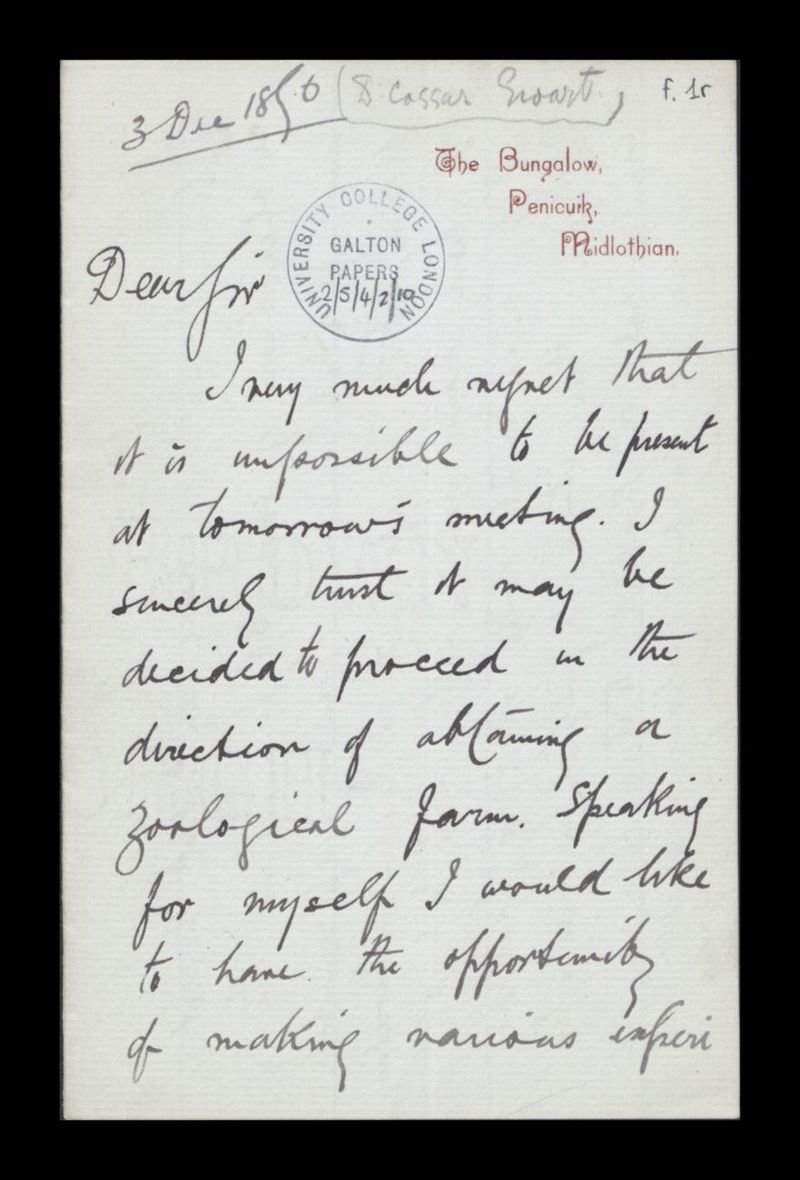 3 Dec 1896 (D. Cossar Ewart)
f. 1r
The Bungalow,
Penicuik,
Midlothian.
UNIVERSITY COLLEGE LONDON
GALTON
PAPERS
2/5/4/2/10
Dear Sir
I very much regret that
it is impossible to be present
at tomorrow's meeting. I
sincerely trust it may be
decided to proceed in the
direction of obtaining a
zoological farm. Speaking
for myself I would like
to have the opportunity
of making various experi